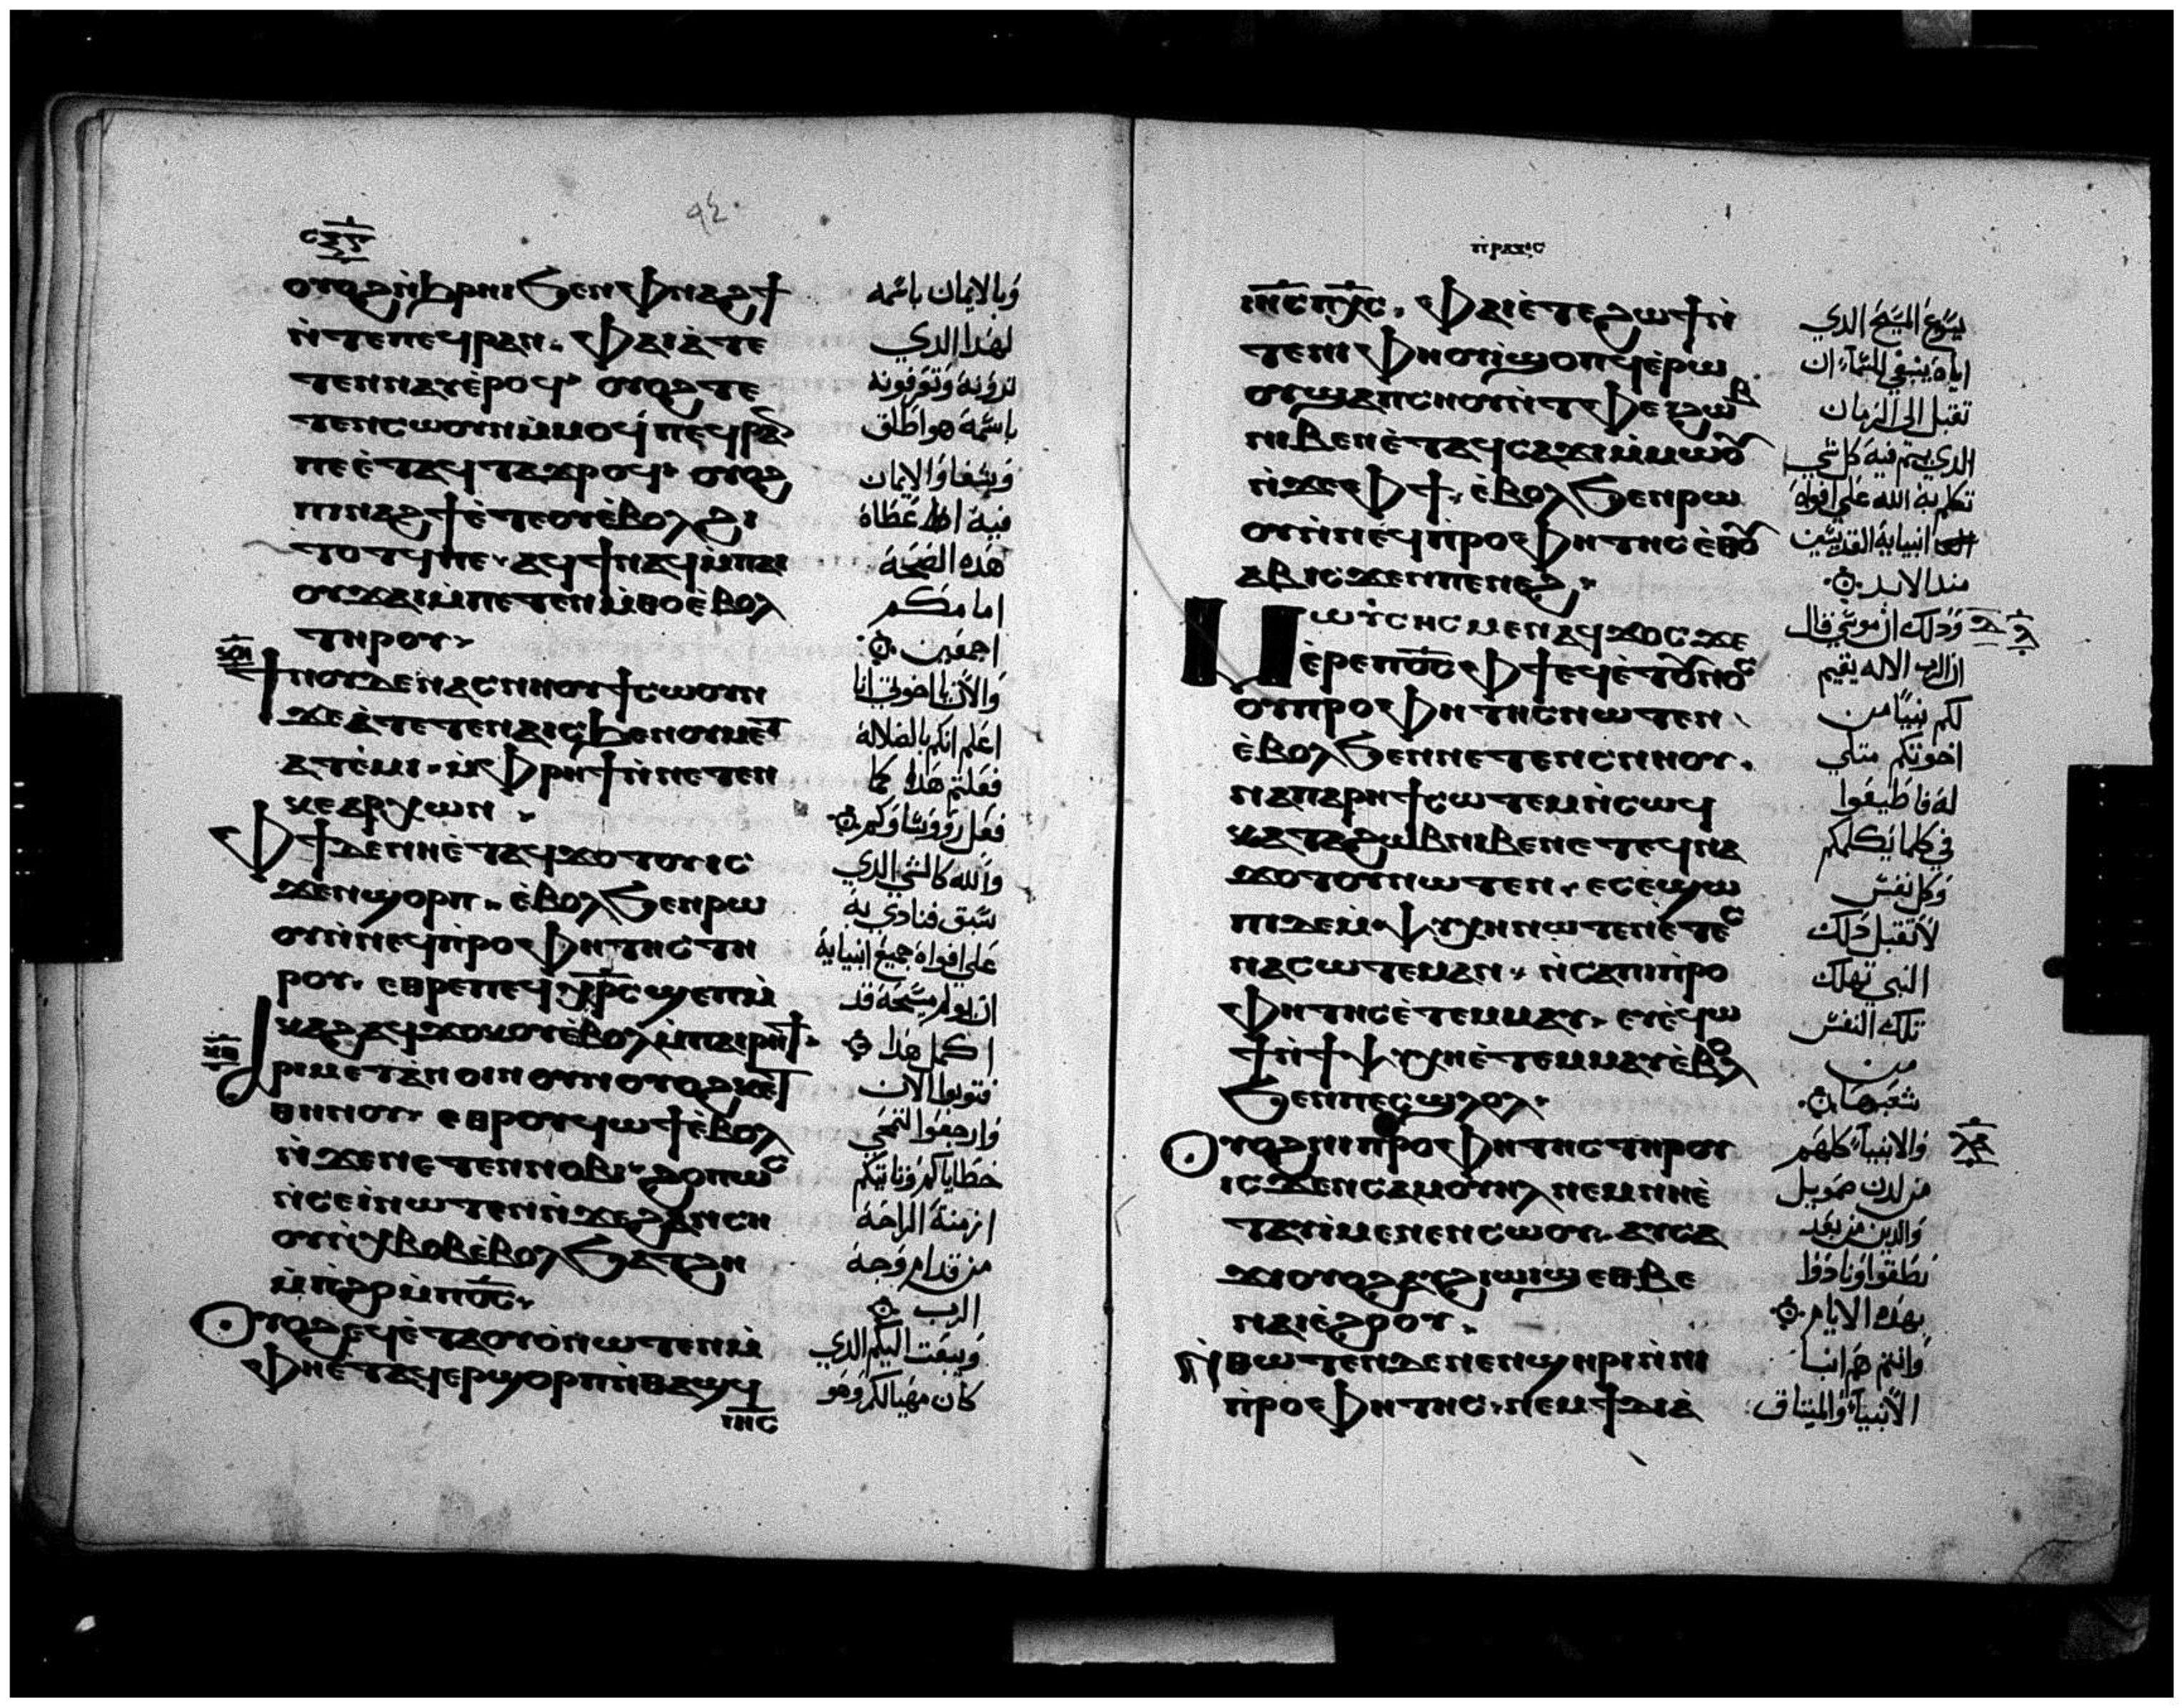 ٩٤
ⲟⲩⲟϩ ⲛ̀ϧⲣⲏⲓ ϧⲉⲛ ⲫⲛⲁϩϯ
ⲛ̀ⲧⲉ ⲡⲉϥⲣⲁⲛ. ⲫⲁⲓ ⲁ̀ⲧⲉ
ⲧⲉⲛⲛⲁⲩ ⲉ̀ⲣⲟϥ ⲟⲩⲟϩ ⲧⲉ
ⲧⲉⲛⲥⲱⲟⲩⲛ ⲙ̀ⲙⲟϥ ⲡⲉϥⲣⲁⲛ
ⲡⲉ ⲉ̀ⲧⲁϥⲧⲁϫⲣⲟϥ ⲟⲩⲟϩ
ⲡⲓⲛⲁϩϯ ⲉ̀ⲧⲉ ⲟⲩⲉ̀ⲃⲟⲗ ϩⲓ
ⲧⲟⲧϥ ⲡⲉ. ⲁϥϯ ⲛⲁϥ ⲙ̀ⲡⲁⲓ
ⲟⲩϫⲁⲓ ⲙ̀ⲡⲉⲧⲉⲛⲙ̀ⲑⲟ ⲉ̀ⲃⲟⲗ
ⲧⲏⲣⲟⲩ.
ϯⲛⲟⲩ ⲇⲉ ⲛⲁⲥⲛⲏⲟⲩ ϯⲥⲱⲟⲩⲛ
ϫⲉ ⲁ̀ⲧⲉⲧⲉⲛⲁⲓⲥ ϧⲉⲛ ⲟⲩⲙⲉⲧ
ⲁⲧⲉ̀ⲙⲓ. ⲙ̀ⲫⲣⲏϯ ⲛ̀ⲛⲉⲧⲉⲛ
ⲕⲉⲁⲣⲭⲱⲛ.
ⲫϯ ⲇⲉ ⲛⲏ ⲉ̀ⲧⲁϥϫⲟⲧⲟⲩ ⲓⲥ
ϫⲉⲛ ϣⲟⲣⲡ. ⲉ̀ⲃⲟⲗ ϧⲉⲛ ⲣⲱ
ⲟⲩ ⲛ̀ⲛⲉϥⲡ̀ⲣⲟⲫⲏⲧⲏⲥ ⲧⲏ
ⲣⲟⲩ. ⲉⲑⲣⲉ ⲡⲉϥⲭ̅ⲣ̅ⲥ̅ ϣⲉⲡ ⲙ̀
ⲕⲁϩ ⲁϥϫⲟⲕⲟⲩ ⲉ̀ⲃⲟⲗ ⲙ̀ⲡⲁⲓⲣⲏϯ.
ⲁⲣⲓⲙⲉⲧⲁⲛⲟⲓⲛ ⲟⲩⲛ ⲟⲩⲟϩ ⲕⲉⲧ
ⲑⲏⲛⲟⲩ. ⲉⲑⲣⲟⲩϥⲱϯ ⲉ̀ⲃⲟⲗ
ⲛ̀ϫⲉ ⲛⲉⲧⲉⲛⲛⲟⲃⲓ. ϩⲟⲡⲱⲥ
ⲛ̀ⲥⲉⲓ̀ ⲛⲱⲧⲉⲛ ⲛ̀ϫⲉ ϩⲁⲛⲥⲏ
ⲟⲩ ⲛ̀ⲭⲃⲟⲃ ⲉ̀ⲃⲟⲗ ϧⲁⲧϩⲏ
ⲙ̀ⲡ̀ϩⲟ ⲙ̀ⲡ̅ⲟ̅ⲥ̅.
ⲟⲩⲟϩ ⲉϥⲉ̀ⲧⲁⲟⲩⲟ̀ ⲛⲱⲧⲉⲛ ⲙ̀
ⲫⲏ ⲉ̀ⲧⲁϥⲉⲣϣⲟⲣⲡ ⲛ̀ⲑⲁϣϥ
ⲓⲏ̅ⲥ̅
وبالايمان باسمه
لهدا الدي
ترونه وتعرفونه
باسمه هو اطلق
وشفا والايمان
فيه اعطاه
هده الصحه
امامكم
اجمعين
والان يا اخوتي انا
اعلم انكم بالضلاله
فعلتم هدا كما
فعل رووساوكم
والله كالشي الدي
سبق فنادي به
علي افواه جميع انبيايه
ان يولم مسيحه قد
اكمل هدا
فتوبوا الان
وارجعوا لتمحي
خطاياكم وتاتيكم
ازمنة الراحه
من قدام وجه
الرب
ويبعت اليكم الدي
كان مهيا لكم وهو
ⲡ̀ⲣⲁⲝⲓⲥ
ⲓⲏ̅ⲥ̅ ⲡⲭ̅ⲥ̅. ⲫⲁⲓ ⲉ̀ⲧⲉ ϩⲱϯ ⲛ̀
ⲧⲉ ⲛⲓⲫⲏⲟⲩⲓ̀ ϣⲟⲡϥ ⲉ̀ⲣⲱ
ⲟⲩ ϣⲁ ⲡⲥⲏⲟⲩ ⲛ̀ⲧⲉ ⲫⲉ ϩⲱⲃ
ⲛⲓⲃⲉⲛ ⲉ̀ⲧⲁϥⲥⲁϫⲓ ⲙ̀ⲙⲱⲟⲩ
ⲛ̀ϫⲉ ⲫϯ. ⲉ̀ⲃⲟⲗ ϧⲉⲛ ⲣⲱ
ⲟⲩ ⲛ̀ⲛⲉϥⲡ̀ⲣⲟⲫⲏⲧⲏⲥ ⲉⲑⲟⲩ
ⲁⲃ ⲓⲥϫⲉⲛ ⲡⲉⲛⲉϩ.
ⲙⲱⲩ̀ⲥⲏⲥ ⲙⲉⲛ ⲁϥϫⲟⲥ ϫⲉ
ⲉ̀ⲣⲉ ⲡ̅ⲟ̅ⲥ̅ ⲫϯ ⲉϥⲉ̀ⲧⲟⲩⲛⲟⲥ
ⲟⲩⲡⲣⲟⲫⲏⲧⲏⲥ ⲛⲱⲧⲉⲛ
ⲉ̀ⲃⲟⲗ ϧⲉⲛ ⲛⲉⲧⲉⲛⲥⲛⲏⲟⲩ.
ⲙⲡⲁⲣⲏϯ ⲥⲱⲧⲉⲙ ⲛ̀ⲥⲱϥ
ⲕⲁⲧⲁ ϩⲱⲃ ⲛⲓⲃⲉⲛ ⲉⲧⲉϥⲛⲁ
ϫⲟⲧⲟⲩ ⲛⲱⲧⲉⲛ. ⲉⲥⲉ̀ϣⲱ
ⲡⲓ ⲇⲉ ⲙ̀ⲯⲩⲭⲏ ⲛⲱⲧⲉⲛ ⲉ̀ⲧⲉⲥ
ⲛⲁⲥⲱⲧⲉⲙ ⲁⲛ. ⲛ̀ⲥⲁ ⲡⲓⲡ̀ⲣⲟ
ⲫⲏⲧⲏⲥ ⲉ̀ⲧⲉⲙⲙⲁⲩ. ⲉⲩⲉ̀ϥⲱ
ϯ ⲛ̀ϯⲯⲩⲭⲏ ⲉ̀ⲧⲉⲙⲙⲁⲩ ⲉ̀ⲃⲟⲗ
ϧⲉⲛ ⲡⲉⲥϣⲗⲟⲗ.
ⲟⲩⲟϩ ⲛⲓⲡ̀ⲣⲟⲫⲏⲧⲏⲥ ⲧⲏⲣⲟⲩ
ⲓⲥϫⲉⲛ ⲥⲁⲙⲟⲩⲏⲗ ⲛⲉⲙ ⲛⲏ ⲉ̀
ⲧⲁⲩⲓ̀ ⲙⲉⲛⲉⲛⲥⲱⲟⲩ. ⲁⲩⲥⲁ
ϫⲓ ⲟⲩⲟϩ ⲁⲩϩⲓⲱⲓϣ ⲉⲑⲃⲉ
ⲛⲁⲓⲉ̀ϩⲟⲟⲩ.
ⲛ̀ⲑⲱⲧⲉⲛ ⲇⲉ ⲛⲉⲛϣⲏⲣⲓ ⲛ̀ⲛⲓ
ⲡ̀ⲣⲟⲫⲏⲧⲏⲥ. ⲛⲉⲙ ϯⲇⲓⲁ̀
يسوع المسيح الدي
اياه ينبغي للسما ان
تقبل الي الزمان
الدي يتم فيه كل شي
تكلم به الله علي افواه
انبيايه القديسين
مند الابد
ودلك ان موسي قال
ان الرب الاله يقيم
لكم نبيا من
اخوتكم متلي
له فاطيعوا
في كلما يكلمكم
وكل نفس
لا تقبل دلك
النبي تهلك
تلك النفس
من
شعبها
والانبيا كلهم
من لدن صمويل
والدين من بعد
نطقوا ونادوا
بهده الايام
وانتم هم ابنا
الانبيا والميتاق